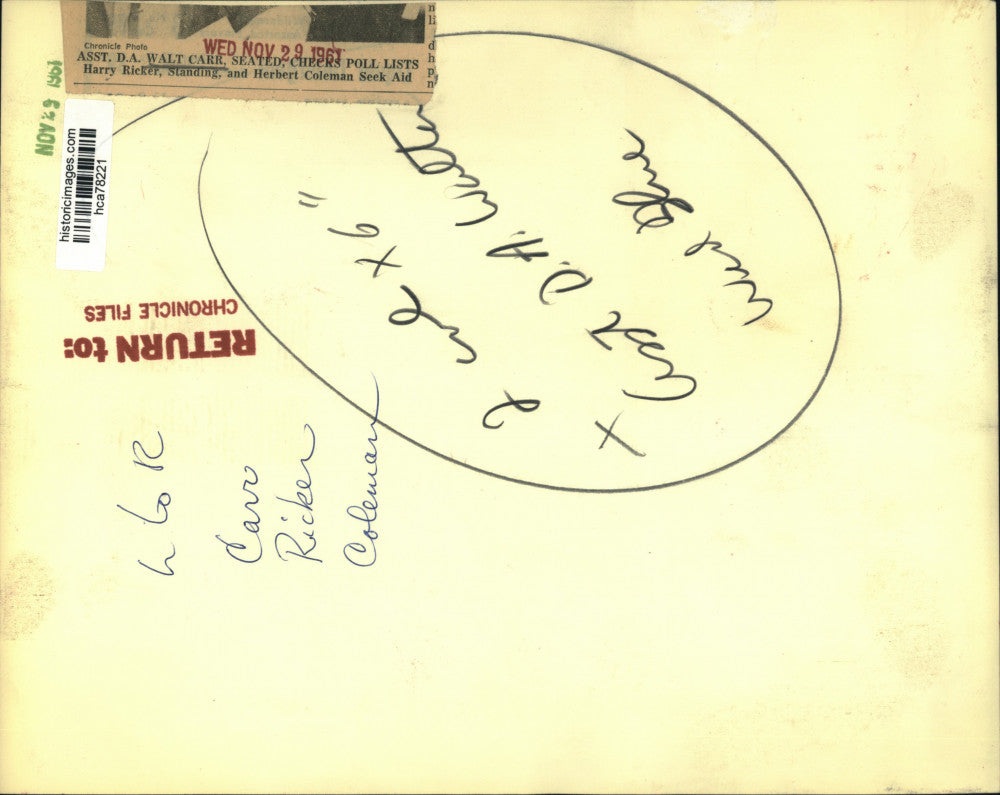 Chronicle Photo
WED NOV 29 1961
ASST. D.A. WALT CARR, SEATED, CHECKS POLL LISTS
Harry Ricker, Standing, and Herbert Coleman Seek Aid
NOV 29 1961
historicimages.com
hca78221
RETURN to:
CHRONICLE FILES
L to R
Carr
Ricker
Coleman
2 col x 6"
x Asst D.A. Walt